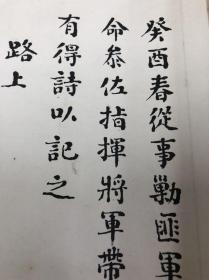 癸酉春從事勦匪軍
命叅佐指揮將軍帶
有得詩以記之
路上